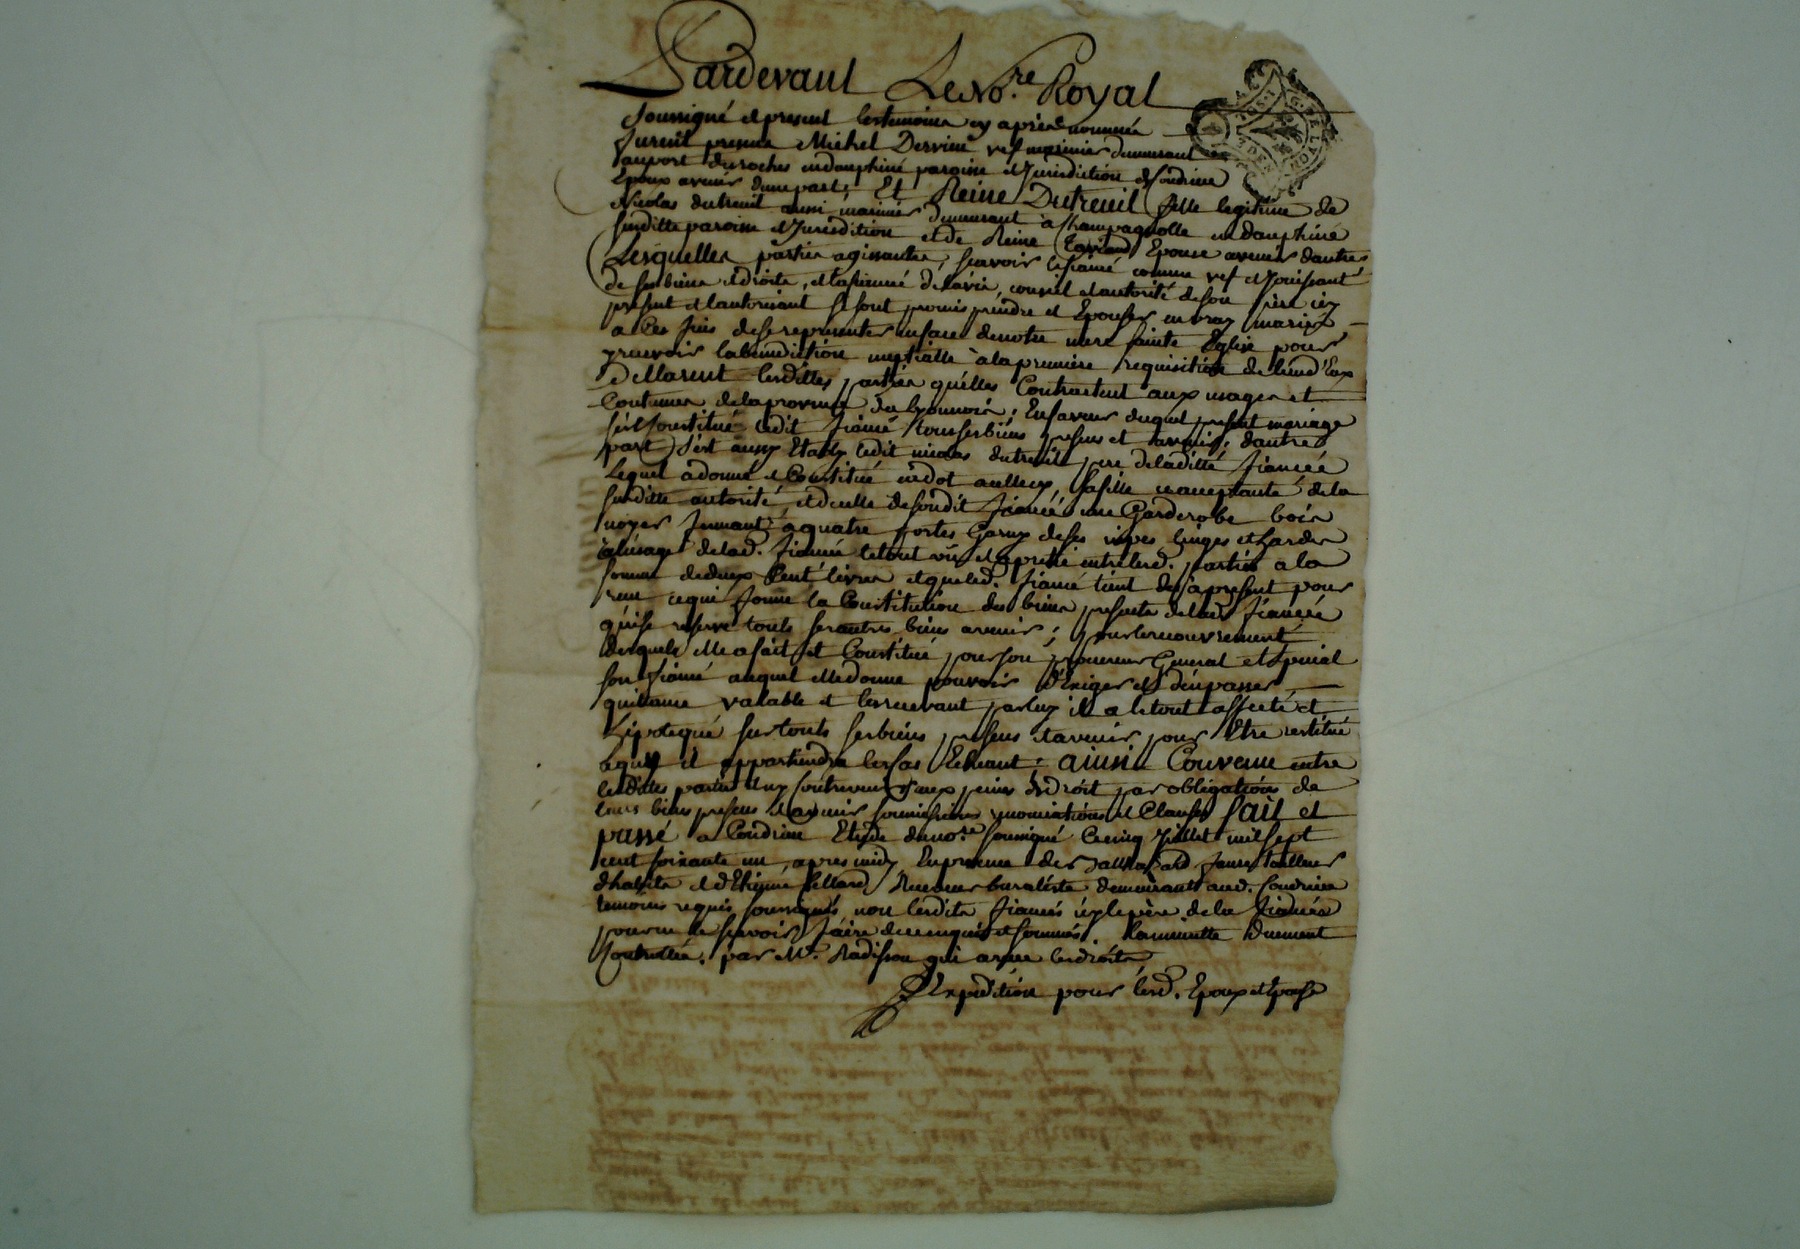 Pardevant Le No.re Royal
soussigné et present les temoins cy apres nommés
furent presents Michel Dervieu vef marinier demeurant
au port des roches en dauphiné paroisse et Jurisdiction de Condrieu
Epoux avenir d'une part; Et Reine Dutreuil fille legitime de
Nicolas dutreuil aussi marinier demeurant à Champagnolle en dauphiné
susditte paroisse et Jurisdiction et de Reine Epouse avenir d'autre
Lesquelles parties agissantes, scavoir le fiancé comme vef et Jouissant
de ses biens et droits, et la fiancée de lavis, conseil et autorité de son père icy
present et lautorisant se sont promis prendre et Epouser en vray mariage
a Ces fins de se representer en face de notre mere sainte Eglise pour
y recevoir la benediction nuptialle à la premiere requisition de lun d'Eux
declarent lesdittes parties qu'elles Contractent aux usages et
Coutumes de la province du lyonnois; En faveur duquel present mariage
s'est Constitué ledit fiancé tous ses biens presens et avenir; dautre
part s'est aussy Etably ledit nicolas dutreuil pere de laditte fiancée
Lequel a donné et Constitué en dot a sa fille acceptante de la
susditte autorité, et de celle de sondit fiancé une Garderobe bois
noyer fermant à quatre portes Garny de ses nipes linges et hardes
à lusage de lad. fiancée le tout vû et aprétié entre lesd. parties a la
somme de deux Cent livres et que led. fiancé tient des apresent pour
reçu ce qui forme la Constitution des biens presents de lad. fiancée
qui se reserve touts ses autres biens avenir; pour le recouvrement
desquels elle a fait et Constitué pour son procureur General et special
son fiancé auquel elle donne pouvoir d'Exiger et d'en passer
quittance valable et les recevant par luy il a le tout affecté et
hipotequé sur touts ses biens presens et avenir pour Etre restitué
a qui il appartiendra le cas Echeant; ainsi Convenu entre
lesdittes parties aux peines de droit par obligations de
leurs biens presens et avenir soumissions renonciations et Clauses fait et
passé a Condrieu Etude du no.re soussigné Ce cinq Juillet mil sept
cent soixante un, apres midy En presence de tailleur
d'habits et d'Etienne Pellard Receveur buraliste demeurants aud. Condrieu
temoins requis soussignés non lesdits fiancés icy le père de la fiancée
pour ne le scavoir faire de ce enquis et sommés. La minutte Duement
Controllée, par M.r Radisson qui a reçu les droits
Expédition pour lesd. Epoux et Epouse